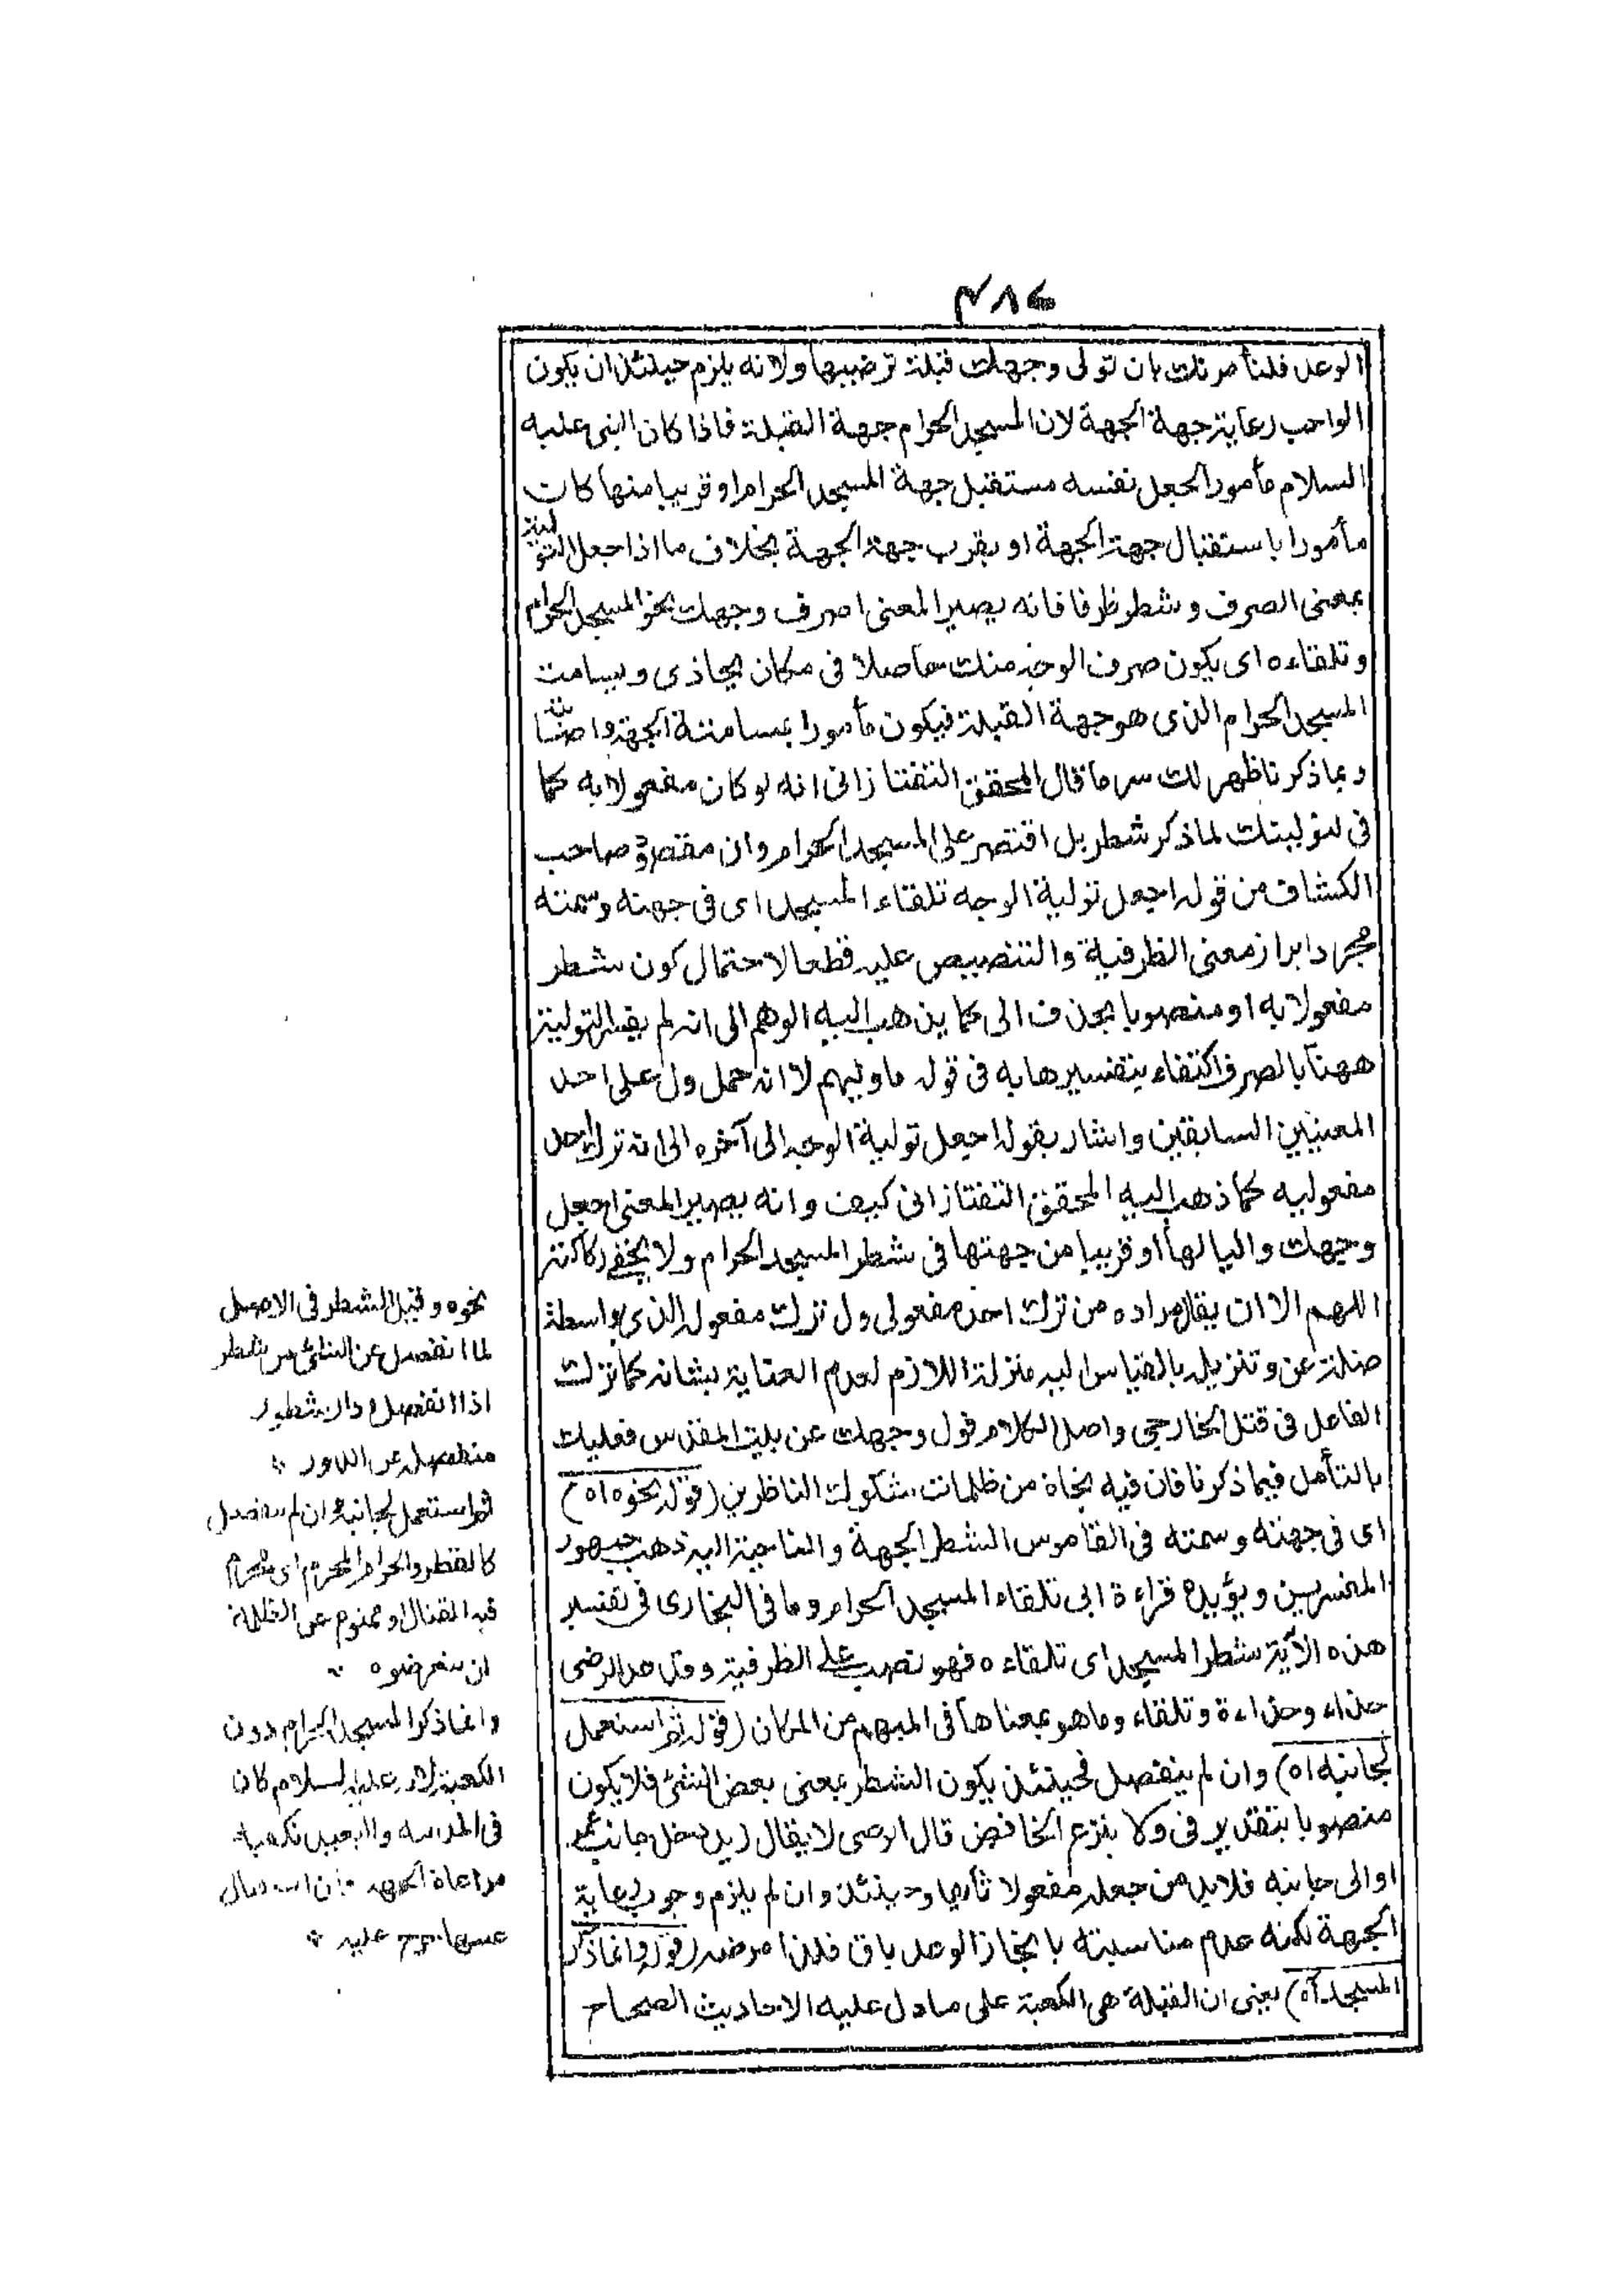 الوعد فلنأمرنك بان تولى وجهك قبلة ترضيها ولانه يلزم حينئذ ان يكون
الواجب رعاية جهة الجهة لان المسجد الحرام جهة القبلة فاذا كان النبى عليه
السلام مأمورا لجعل نفسه مستقبل جهة المسجد الحرام او قريبا منها كان
مأمورا باستقبال جهة الجهة او بقرب جهة الجهة بخلاف ما اذا جعل التولية
بمعنى الصرف وشطر ظرفا فانه يصير المعنى اصرف وجهك نحو المسجد الحرام
وتلقاءه اى يكون صرف الوجه منك حاصلا فى مكان يحاذى ويسامت
المسجد الحرام الذى هو جهة القبلة فيكون مأمورا بمسامتة الجهة
وبما ذكرنا ظهر لك سر ما قال المحقق التفتازانى انه لو كان مفعولا به كما
فى لنولينك لما ذكر شطر بل اقتصر على المسجد الحرام وان مقصود صاحب
الكشاف من قوله اجعل تولية الوجه تلقاء المسجد اى فى جهته وسمته
مجرد ابراز معنى الظرفية والتنصيص عليه قطعا لاحتمال كون شطر
مفعولا به او منصوبا بحذف الى كما يذهب اليه الوهم الى انه لم يفسر التولية
ههنا بالصرف اكتفاء بتفسيرها به فى قوله ما وليهم لا انه حمل ول على احد
المعنيين السابقين واشار بقوله اجعل تولية الوجه الى آخره الى انه ترك احد
مفعوليه كما ذهب اليه المحقق التفتازانى كيف وانه يصير المعنى اجعل
وجهك واليا لها او قريبا من جهتها فى شطر المسجد الحرام ولا يخفى ركاكته
اللهم الا ان يقال مراده من ترك احد مفعولى ول ترك مفعوله الذى بواسطة
صلة عن وتنزيله بالقياس اليه منزلة اللازم لعدم العناية بشانه كما ترك
الفاعل فى قتل الخارجى واصل الكلام فول وجهك عن بيت المقدس فعليك
بالتأمل فيما ذكرنا فان فيه نجاة من ظلمات شكوك الناظرين (قوله نحوه اه)
اى فى جهته وسمته فى القاموس الشطر الجهة والناحية اليه ذهب جمهور
المفسرين ويؤيده قراءة ابى تلقاء المسجد الحرام وما فى البخارى فى تفسير
هذه الآية شطر المسجد اى تلقاءه فهو نصب على الظرفية وقد عد الرضى
حذاء وحذاءة وتلقاء وما هو بمعناها فى المبهم من المكان (قوله ثم استعمل
لجانبه اه) وان لم ينفصل فحينئذ يكون الشطر بمعنى بعض الشئ فلا يكون
منصوبا بتقدير فى ولا بنزع الخافض قال الرضى لا يقال زيد دخل جانب عمرو
او الى جانبه فلابد من جعله مفعولا ثانيا وحينئذ وان لم يلزم وجوب رعاية
الجهة لكنه عدم مناسبته بانجاز الوعد باق فلذا مرضه (قوله وانما ذكر
المسجد آه) يعنى ان القبلة هى الكعبة على ما دل عليه الاحاديث الصحاح
نحوه وقيل الشطر فى الاصل
لما انفصل عن الشئ من شطر
اذا انفصل ودار شطور
منفصلة عن الدور
ثم استعمل لجانبه وان لم ينفصل
كالقطر والحرام المحرم اى محرم
فيه القتال او ممنوع عن الظلمة
ان يتعرضوه
وانما ذكر المسجد الحرام دون
الكعبة لانه عليه السلام كان
فى المدينة والبعيد يكفيه
مراعاة الجهة فان استقبال
عينها حرج عليه